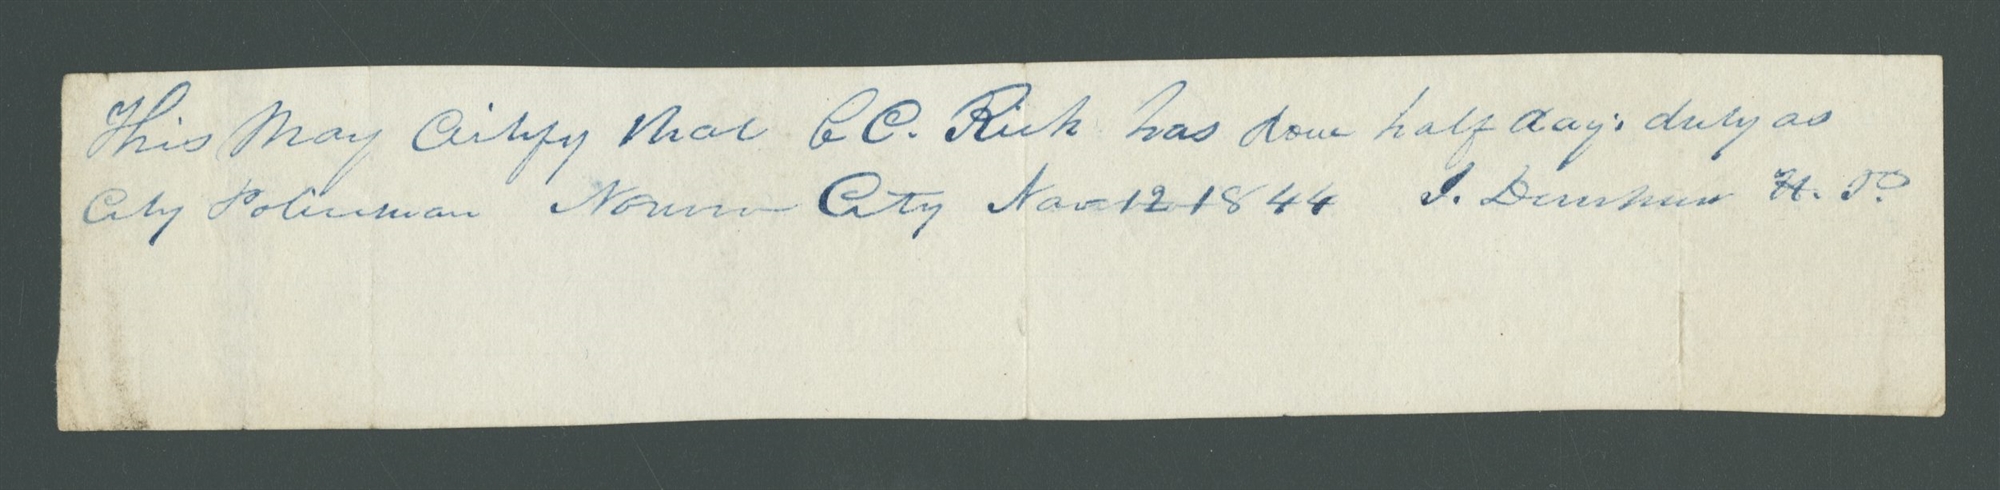 This May Certify that C C. Rich has done half day. duty as
City Policeman Nauvoo City Nov 12 1844 J. Dunham H. P.